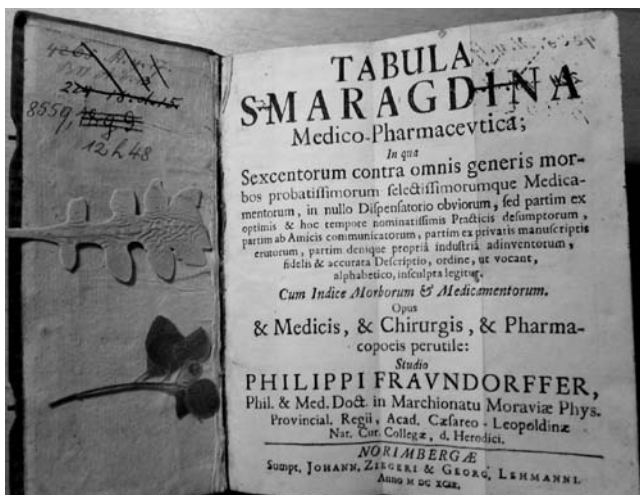 8559,
12 h 48
TABULA
SMARAGDINA
Medico-Pharmacevtica;
In qua
Sexcentorum contra omnis generis mor-
bos probatiſſimorum ſelectiſſimorumque Medica-
mentorum, in nullo Diſpenſatorio obviorum, ſed partim ex
optimis & hoc tempore nominatiſſimis Practicis deſumptorum,
partim ab Amicis communicatorum, partim ex privatis manuſcriptis
erutorum, partim denique propriâ induſtriâ adinventorum,
fidelis & accurata Deſcriptio, ordine, ut vocant,
alphabetico, inſculpta legitur.
Cum Indice Morborum & Medicamentorum.
Opus
& Medicis, & Chirurgis, & Pharma-
copoeis perutile:
Studio
PHILIPPI FRAVNDORFFER,
Phil. & Med. Doct. in Marchionatu Moraviæ Phys.
Provincial. Regii, Acad. Cæſareo-Leopoldinæ
Nat. Cur. Collegæ, d. Herodici.
NORIMBERGÆ
Sumpt. JOHANN. ZIEGERI & GEORG. LEHMANNI.
Anno M DC XCIX.